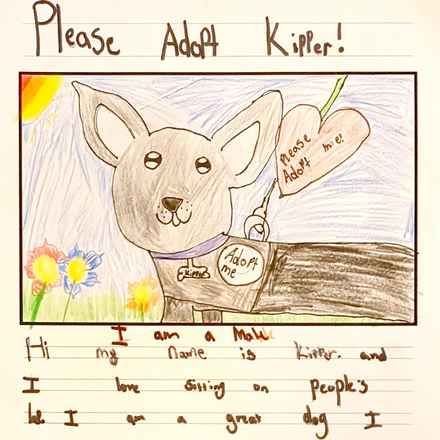 Please Adopt Kipper!
Please
Adopt me!
Adopt
me
I am a Male
Hi my name is Kipper. and
I love sitting on people's
I am a great dog I